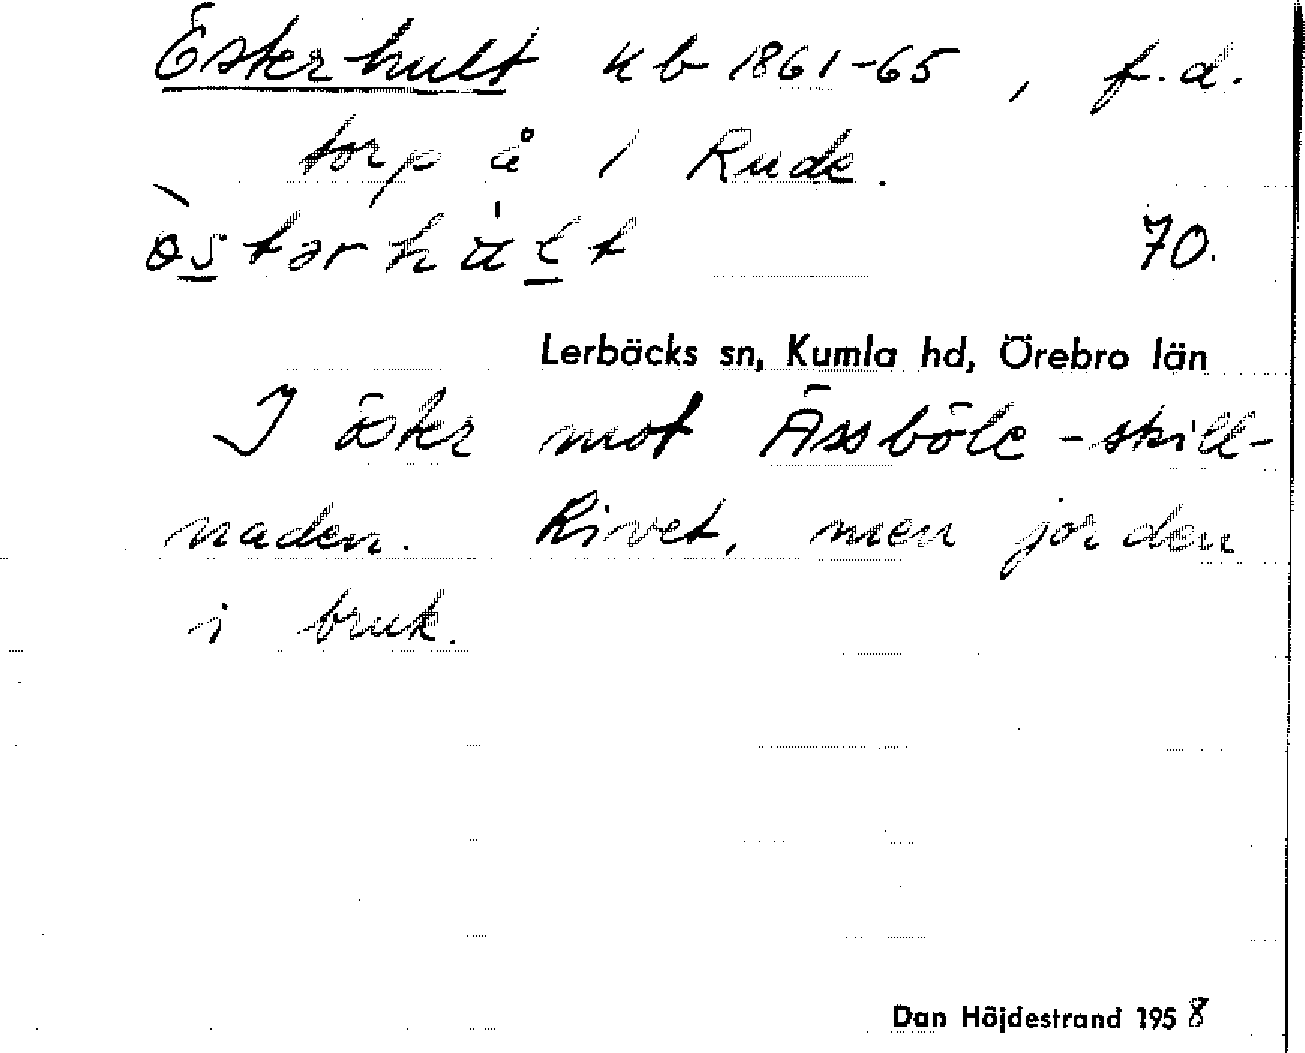 Österhult kb 1861-65, f.d.
torp å 1 Rude.
östərhult 70.
Lerbäcks sn, Kumla hd, Örebro län
I öster mot Åssböle-skill-
naden. Rivet, men jorden
i bruk.
Dan Höjdestrand 1958